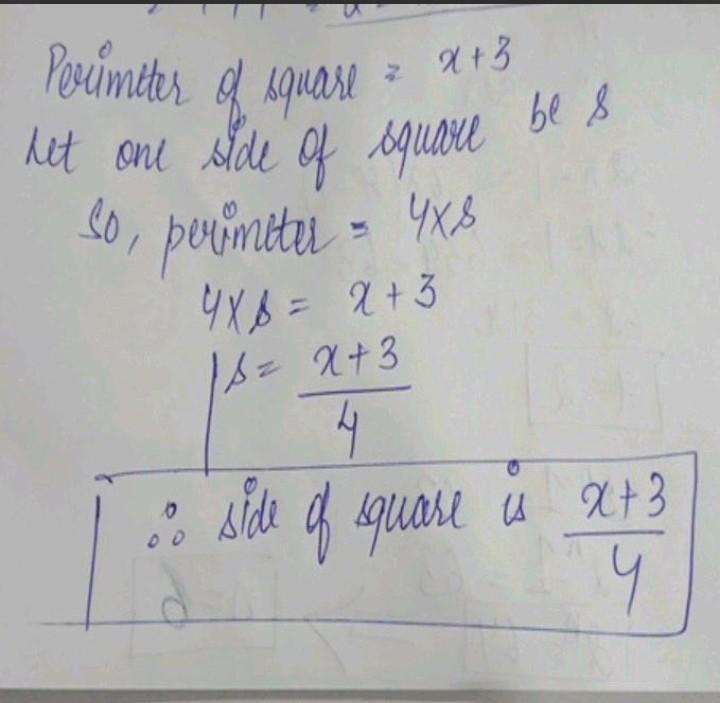 Perimeter of square = x+3
Let one side of square be s
So, perimeter = 4×s
4×s = x+3
s = x+3
4
∴ side of square is x+3
4